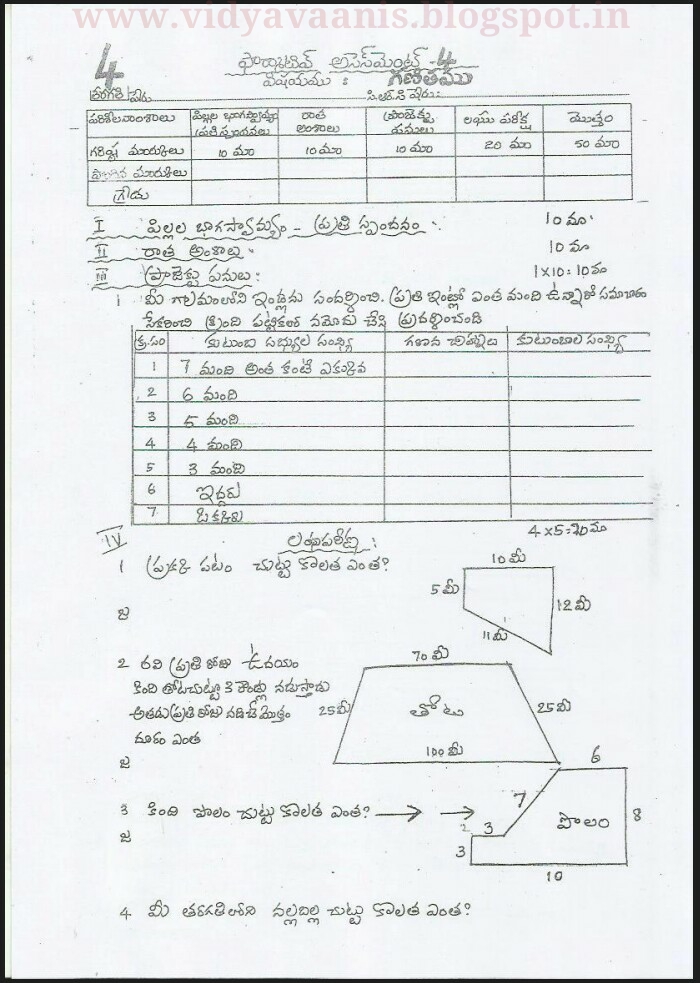 www.vidyavaanis.blogspot.in
4
ఫార్మాటివ్ అసెస్‌మెంట్ - 4
విషయము : గణితము
తరగతి/పేరు
పరిశీలనాంశాలు పిల్లల భాగస్వామ్యం ప్రతిస్పందనలు రాత అంశాలు ప్రాజెక్టు పనులు లఘు పరీక్ష మొత్తం
గరిష్ట మార్కులు 10 మా 10 మా 10 మా 20 మా 50 మా
సాధించిన మార్కులు
గ్రేడు
I పిల్లల భాగస్వామ్యం - ప్రతి స్పందనం : 10 మా
II రాత అంశాలు 10 మా
III ప్రాజెక్టు పనులు : 1x10=10మా
i మీ గ్రామంలోని ఇండ్లను సందర్శించి. ప్రతి ఇంట్లో ఎంత మంది ఉన్నారో సమాచారం
సేకరించి క్రింది పట్టికలో నమోదు చేసి ప్రదర్శించండి
క్ర.సం కుటుంబ సభ్యుల సంఖ్య గణన చిహ్నాలు కుటుంబాల సంఖ్య
1 7 మంది అంత కంటే ఎక్కువ
2 6 మంది
3 5 మంది
4 4 మంది
5 3 మంది
6 ఇద్దరు
7 ఒక్కరు
IV లఘుపరీక్ష : 4x5=20మా
1 ప్రక్కి పటం చుట్టు కొలత ఎంత?
10 మీ
5 మీ
12 మీ
11 మీ
జ
2 రవి ప్రతి రోజు ఉదయం
కింది తోటచుట్టూ 3 రౌండ్లు నడుస్తాడు
అతడు ప్రతి రోజు నడిచే మొత్తం
దూరం ఎంత
జ
70 మీ
25 మీ తోట 25 మీ
100 మీ
3 కింది పొలం చుట్టు కొలత ఎంత?
జ
6
7 పొలం 8
2
3
3
10
4 మీ తరగతిలోని నల్లబల్ల చుట్టు కొలత ఎంత?